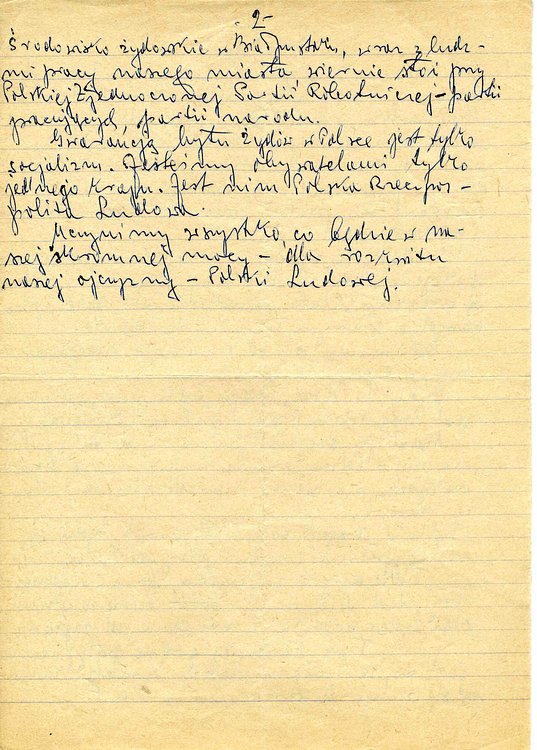 -2-
Środowisko żydowskie w Białymstoku, wraz z ludź-
mi pracy naszego miasta, wiernie stoi przy
Polskiej Zjednoczonej Partii Robotniczej - partii
pracujących, partii narodu.
Gwarancją bytu Żydów w Polsce jest tylko
socjalizm. Jesteśmy obywatelami tylko
jednego kraju. Jest nim Polska Rzeczpos-
polita Ludowa.
Uczynimy wszystko, co będzie w na-
szej skromnej mocy - dla rozkwitu
naszej ojczyzny - Polski Ludowej.